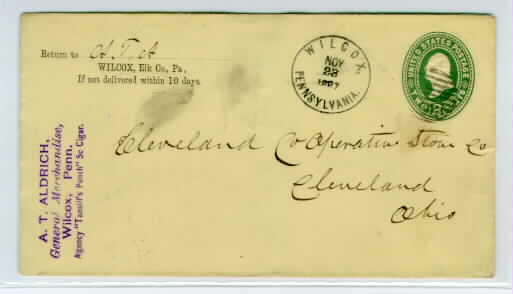 Return to A. T. A
WILCOX, Elk Co., Pa.,
If not delivered within 10 days.
WILCOX,
NOV
23
1887
PENNSYLVANIA.
UNITED STATES POSTAGE
A. T. ALDRICH,
General Merchandise,
Wilcox, Penn.
Agency "Tansill's Punch" 5c Cigar.
Cleveland Co Operative Stove Co
Cleveland
Ohio